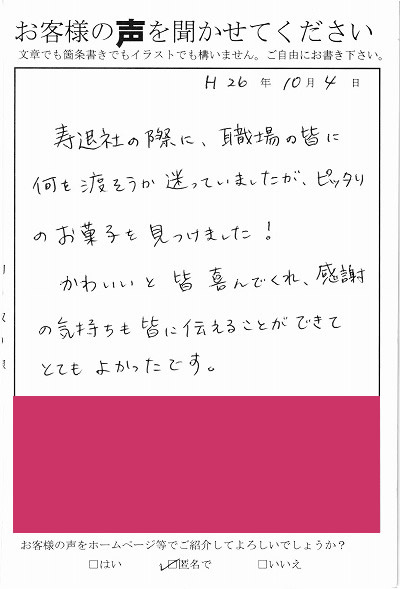 お客様の声を聞かせてください
文章でも箇条書きでもイラストでも構いません。ご自由にお書き下さい。
H 26 年 10 月 4 日
寿退社の際に、職場の皆に
何を渡そうか迷っていましたが、ピッタリ
のお菓子を見つけました！
かわいいと皆喜んでくれ、感謝
の気持ちも皆に伝えることができて
とてもよかったです。
お客様の声をホームページ等でご紹介してよろしいでしょうか？
□はい ☑匿名で □いいえ